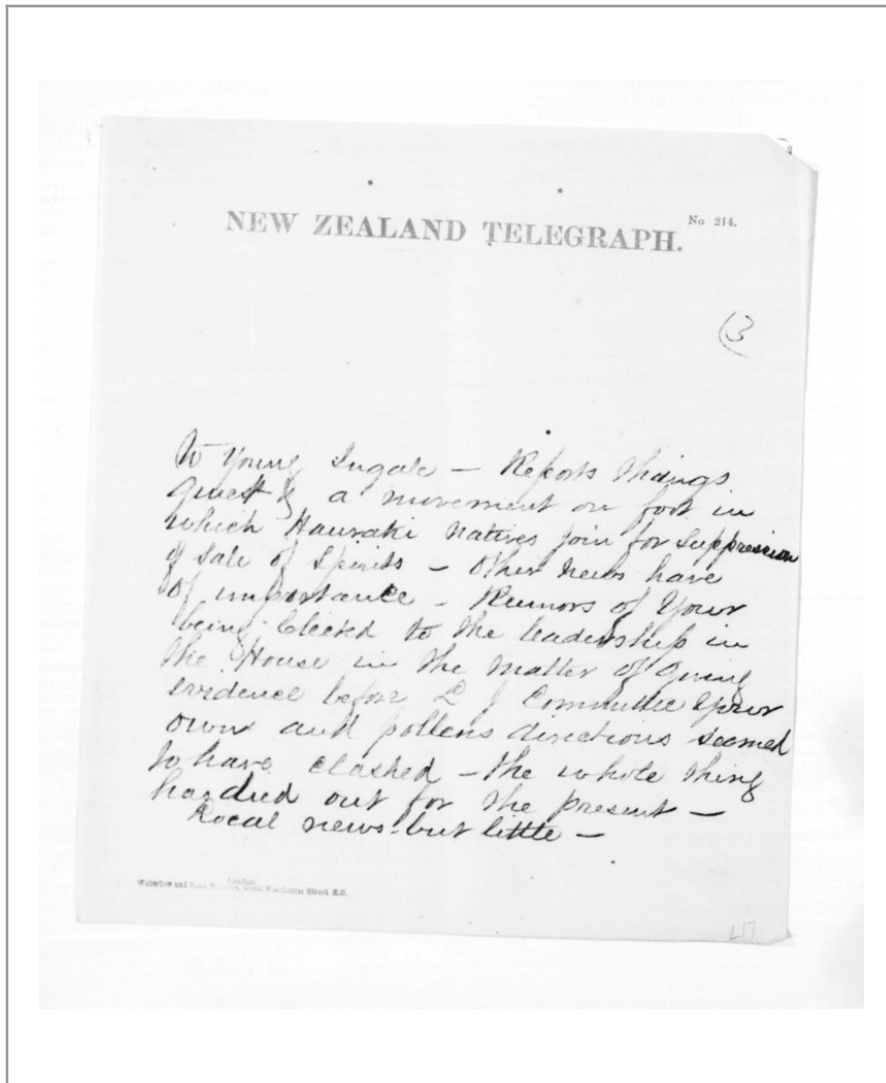 NEW ZEALAND TELEGRAPH.
No 214.
(3
Young Ingate — Reports things
quiet & a movement on foot in
which Hauraki natives join for suppression
of sale of spirits — Other news have
of importance — Rumors of your
being Elected to the leadership in
the House in the matter of giving
evidence before L J Committee your
own and pollens directions seemed
to have clashed — the whole thing
out for the present —
Local news but little —
London
Waterlow and Sons, Street E.C.
L17